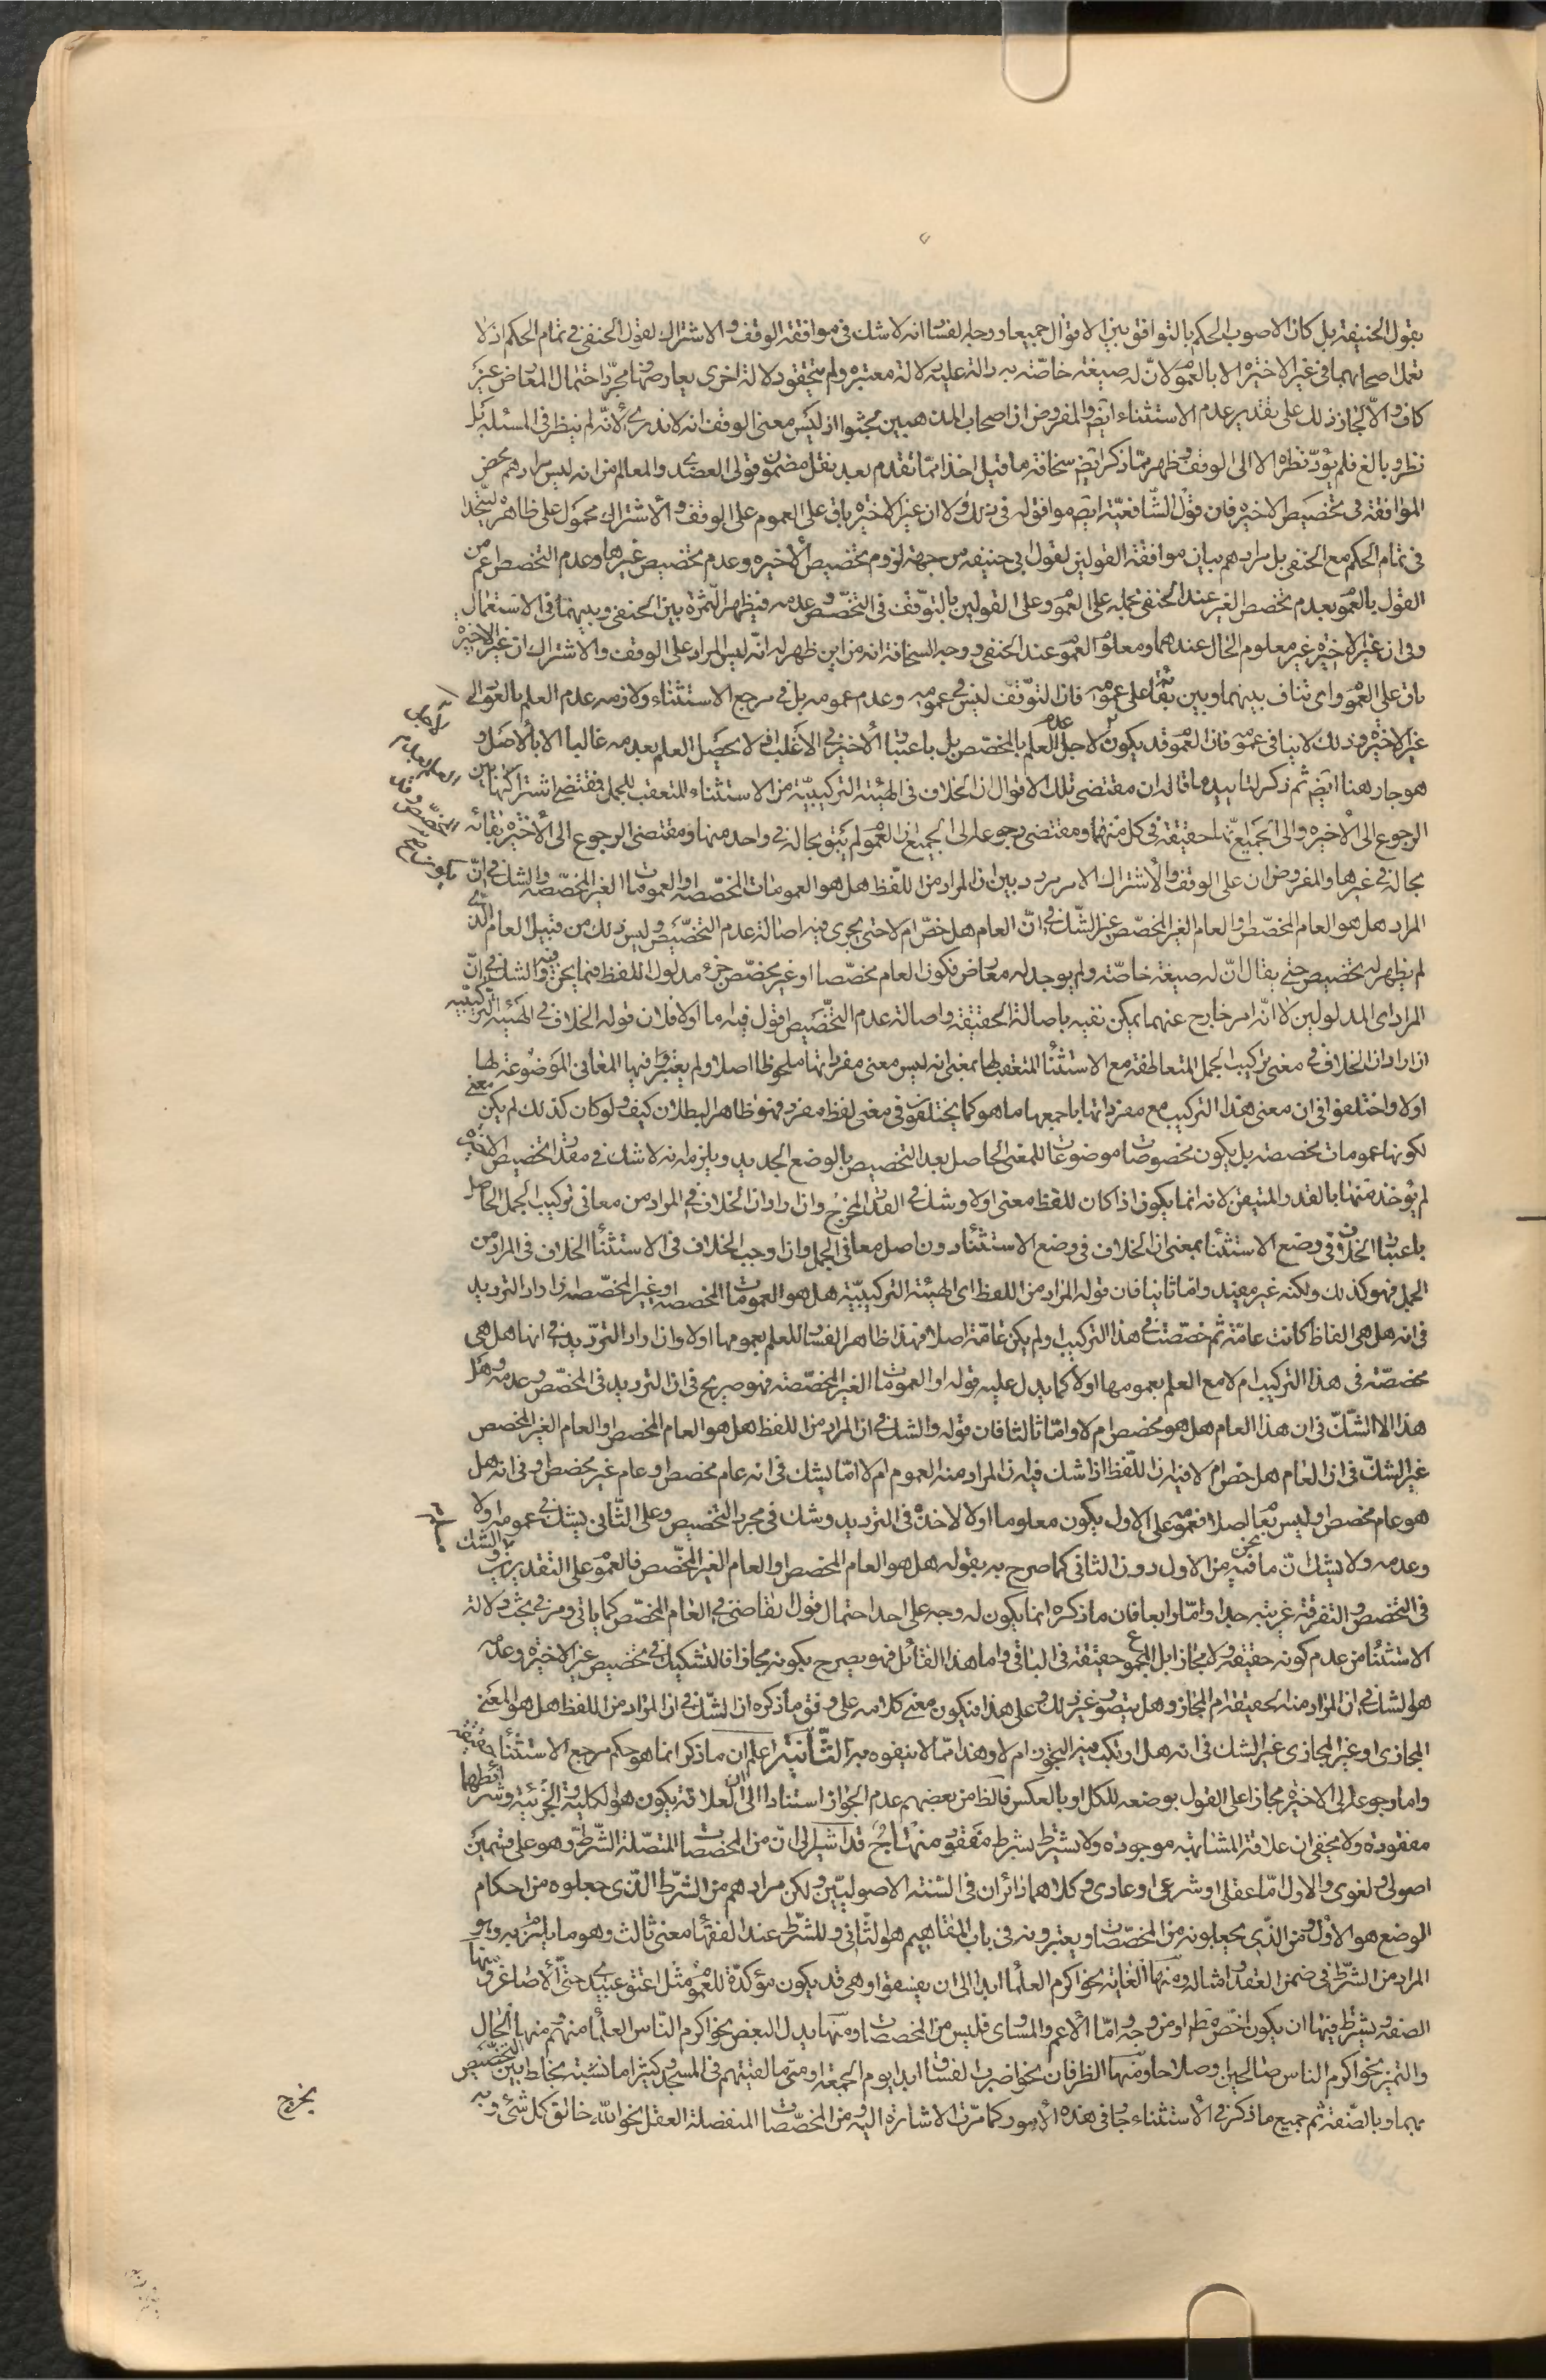 بقول الحنيفة بل كان الاصوب الحكم بالتوافق بين الاقوال جميعا ووجه لفسا انه لا شك فى موافقة الوقف والاشتراك لقول الحنفى فى تمام الحكم اذ لا
تعمل اصحابهما فى غير الاخيرة الا بالعموم لانّ له صيغة خاصّة به دالة عليه لالة معتبره ولم يتحقق دلالة اخرى يعارضها مجرّد احتمال المعارض غير
كاف والّا لجاز ذلك على تقدير عدم الاستثناء ايضا والمفروض ان اصحاب المذهبين مجثوا اذ ليس معنى الوقف انه لا ندرى لأنّه لم ينظر فى المسئلة بل
نظر وبالغ فلم يؤدّ نظره الا الى الوقف وظهر ممّا ذكر ايضا سخافة ما قيل اخذا ممّا تقدم بعد نقل مضمون قولى العضدى والمعالم من انه ليس مرادهم محض
الموافقة فى تخصيص الاخيره فان قول الشّافعيّة ايضا موافق له فى ذلك ولا ان غير الاخيرة باق على العموم على الوقف والاشتراك محمول على ظاهره ليتّحدا
فى تمام الحكم مع الحنفى بل مرادهم بيان موافقة القولين لقول ابى حنيفه من جهة لزوم تخصيص الأخيره وعدم تخصيص غيرها وعدم التخصص اعم من
القول بالعموم بعدم تخصص الغير عند الحنفى بحمله على العموم وعلى القولين بالتوقّف فى التخصّص وعدمه فيظهر الثّمرة بين الحنفى وبينهما فى الاستعمال
وفى ان غير الاخيرة غير معلوم الحال عندهما ومعلوم العموم عند الحنفى ووجه السخافة انه من اين ظهر له انّه ليس المراد على الوقف والاشتراك ان غير الاخيرة
باق على العموم واى تناف بينهما وبين بقائه على عمومه فان التوقّف ليس فى عمومه وعدم عمومه بل فى مرجع الاستثناء ولازمه عدم العلم بالعود الى
غير الاخيرة وذلك لا ينافى عمومه فان العموم قد يكون لاجل عدم العلم بالمخصّص بل باعتبار الأخير فى الاغلب اذ لا يحصل العلم بعدمه غالبا الا بالأصل و
هو جار هنا ايضا ثم ذكر لتاييد ما قاله ان مقتضى تلك الاقوال ان الخلاف فى الهيئة التركيبيّة من الاستثناء المتعقب للجمل فمقتضى اشتراكها بين
الرجوع الى الأخيره والى الجميع انّها حقيقة فى كل منهما ومقتضى رجوعها الى الجميع ان العموم لم يبق بحاله فى واحد منها ومقتضى الرجوع الى الأخيرة بقائه
بحاله فى غيرها والمفروض ان على الوقف والاشتراك الامر مردد بين ان المراد من اللّفظ هل هو العمومات المخصّصه او العمومات الغير المخصّصه والشك فى انّ
المراد هل هو العام المخصّص او العام الغير المخصّص غير الشّك فى انّ العام هل خصّ ام لا حتى يجرى فيه اصالة عدم التخصّيص وليس ذلك من قبيل العام الّذى
لم يظهر له تخصيص حتى يقال انّ له صيغة خاصّة ولم يوجد له معارض فكون العام مخصّصا او غير مخصّص جزء مدلول اللفظ فيما نحن فيه والشك فى انّ
المراد اى المدلولين لا انّه امر خارج عنهما يمكن نفيه باصالة الحقيقة واصالة عدم التخصيص اقول فيه ما اولا فلان قوله الخلاف فى الهيئة التركيبيّة
ان اراد ان الخلاف فى معنى تركيب الجمل المتعاطفة مع الاستثناء المتعقب لها بمعنى انه ليس معنى مفرداتها ملحوظا اصلا ولم يعتبر فيها المعانى الموضوعة لها
اولا واختلفوا فى ان معنى هذا التركيب مع مفرداتها باجمعها ما هو كما يختلفون فى معنى لفظ مفرد فهو ظاهر البطلان كيف ولو كان كذلك لم يكن معنى
لكونها عمومات مخصصة بل يكون مخصوصات موضوعات للمعنى الحاصل بعد التخصيص بالوضع الجديد ويلزم انه لا شك فى مقدار تخصيص الاخيره
لم يؤخذ منها بالقدر المتيقن لانه انما يكون اذا كان للفظ معنى اولا وشك فى القدر المخرج وان اراد ان الخلاف فى المراد من معانى تركيب الجمل الحاصل
باعتبار الخلاف فى وضع الاستثناء بمعنى ان الخلاف فى وضع الاستثناء دون اصل معانى الجمل وان اوجب الخلاف فى الاستثناء الخلاف فى المراد من
الجمل فهو كذلك ولكنه غير مفيد وامّا ثانيا فان قوله المراد من اللفظ اى الهيئة التركيبيّة هل هو العمومات المخصصه او غير المخصّصه ان اراد الترديد
فى انه هل هى الفاظ كانت عامّة ثم خصّصت فى هذا التركيب او لم يكن عامّة اصلا فهذا ظاهر الفساد للعلم بعمومها اولا وان اراد التردّيد فى انها هل هى
مخصصّة فى هذا التركيب ام لا مع العلم بعمومها اولا كما يدل عليه قوله او العمومات الغير المخصّصة فهو صريح فى ان الترديد فى المخصّص وعدمه وهل
هذا الا الشّكّ فى ان هذا العام هل هو مخصص ام لا وامّا ثالثا فان قوله والشك فى ان المراد من اللفظ هل هو العام المخصص او العام الغير المخصص
غير الشكّ فى ان العام هل خصّ ام لا فيه ان اللّفظ اذا شك فيه ان المراد منه العموم ام لا امّا يشك فى انه عام مخصص او عام غير مخصص او فى انه هل
هو عام مخصص او ليس بعام اصلا فعمومه على الاول يكون معلوما اولا لاخذه فى الترديد وشك فى مجرد التخصيص وعلى الثّانى يشك فى عمومه اولا
وعدمه ولا يشك انّ ما نحن فيه من الاول دون الثانى كما صرح به بقوله هل هو العام المخصص او العام الغير المخصّص فالعموم على التقديرين ثابت والشك
فى التخصص والتفرقة غريبة جدا وامّا رابعا فان ما ذكره انما يكون له وجه على احد احتمال قول القاضى فى العام المخصّص كما ياتى ومر فى بحث دلالة
الاستثناء من عدم كونه حقيقة ولا مجازا بل المجموع حقيقة فى الباقى واما هذا القائل فهو يصرح بكونه مجازا فالتشكيك فى تخصيص غير الاخيرة وعدمه
هو الشك فى ان المراد منه الحقيقة ام المجاز وهل يتصور غير ذلك وعلى هذا فيكون معنى كلامه على وفق ما ذكره ان الشّك فى ان المراد من اللفظ هل هو المعنى
المجازى او غير المجازى غير الشك فى انه هل ارتكب فيه التجوز ام لا وهذا ممّا لا يتفوه به الثّانية اعلم ان ما ذكر انما هو حكم مرجع الاستثناء حقيقة
واما رجوعه الى الاخيرة مجازا على القول بوضعه للكل او بالعكس فالظ من بعضهم عدم الجواز استنادا الى ان العلاقة يكون هو الكلية والجزئية وشرائطهما
مفقودة ولا يخفى ان علاقة المشابهة موجودة ولا يشترط بشرط مفقود منهاج قد اشير الى انّ من المخصصات المتصّلة الشّرط وهو على قسمين
اصولى ولغوى والاول امّا عقلى او شرعى او عادى وكلاهما دائران فى السنة الاصوليّين ولكن مرادهم من الشّرط الّذى جعلوه من احكام
الوضع هو الأول ومن الّذى يجعلونه من المخصّصات ويعتبرونه فى باب المفاهيم هو الثّانى وللشّرط عند الفقهاء معنى ثالث وهو ما يلتزم به وهو
المراد من الشّرط فى ضمن العقد وامثاله ومنها الغاية نحو اكرم العلماء ابدا الى ان يفسقوا وهى قد يكون مؤكدّة للعموم مثل اعتق عبيدى حتى الأصاغر ومنها
الصفة ويشترط فيها ان يكون اخصّ مطلقا او من وجه وامّا الأعم والمساوى فليس من المخصصات ومنها بدل البعض نحو اكرم النّاس العلماء منهم ومنها الحال
والتميز نحو اكرم الناس صالحين او صلاحا ومنها الظرفان نحو اضرب الفساق ابدا يوم الجمعة او متى ما لقيتهم فى المسجد وكثيرا ما نشبته يخلط بين التخصيص
بهما وبالصّفة ثم جميع ما ذكر فى الأستثناء جار فى هذه الأمور كما مرّت الاشارة اليه ومن المخصّصات المنفصلة العقل نحو اللّه خالق كل شئ وبه
يخرج